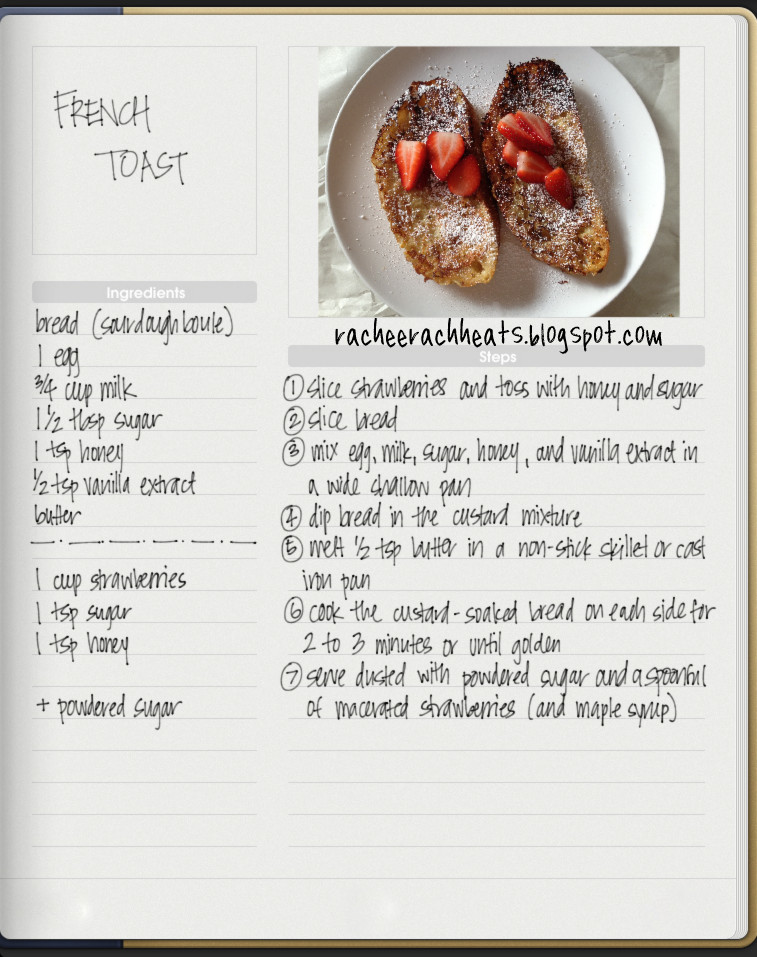 FRENCH
TOAST
Ingredients
bread (sourdough boule)
1 egg
3/4 cup milk
1 1/2 tbsp sugar
1 tsp honey
1/2 tsp vanilla extract
butter
1 cup strawberries
1 tsp sugar
1 tsp honey
+ powdered sugar
racheerachheats.blogspot.com
Steps
① slice strawberries and toss with honey and sugar
② slice bread
③ mix egg, milk, sugar, honey, and vanilla extract in
a wide shallow pan
④ dip bread in the custard mixture
⑤ melt 1/2 tsp butter in a non-stick skillet or cast
iron pan
⑥ cook the custard-soaked bread on each side for
2 to 3 minutes or until golden
⑦ serve dusted with powdered sugar and a spoonful
of macerated strawberries (and maple syrup)